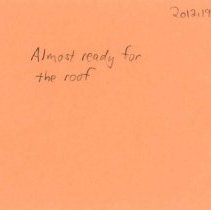 2012.19
Almost ready for
the roof